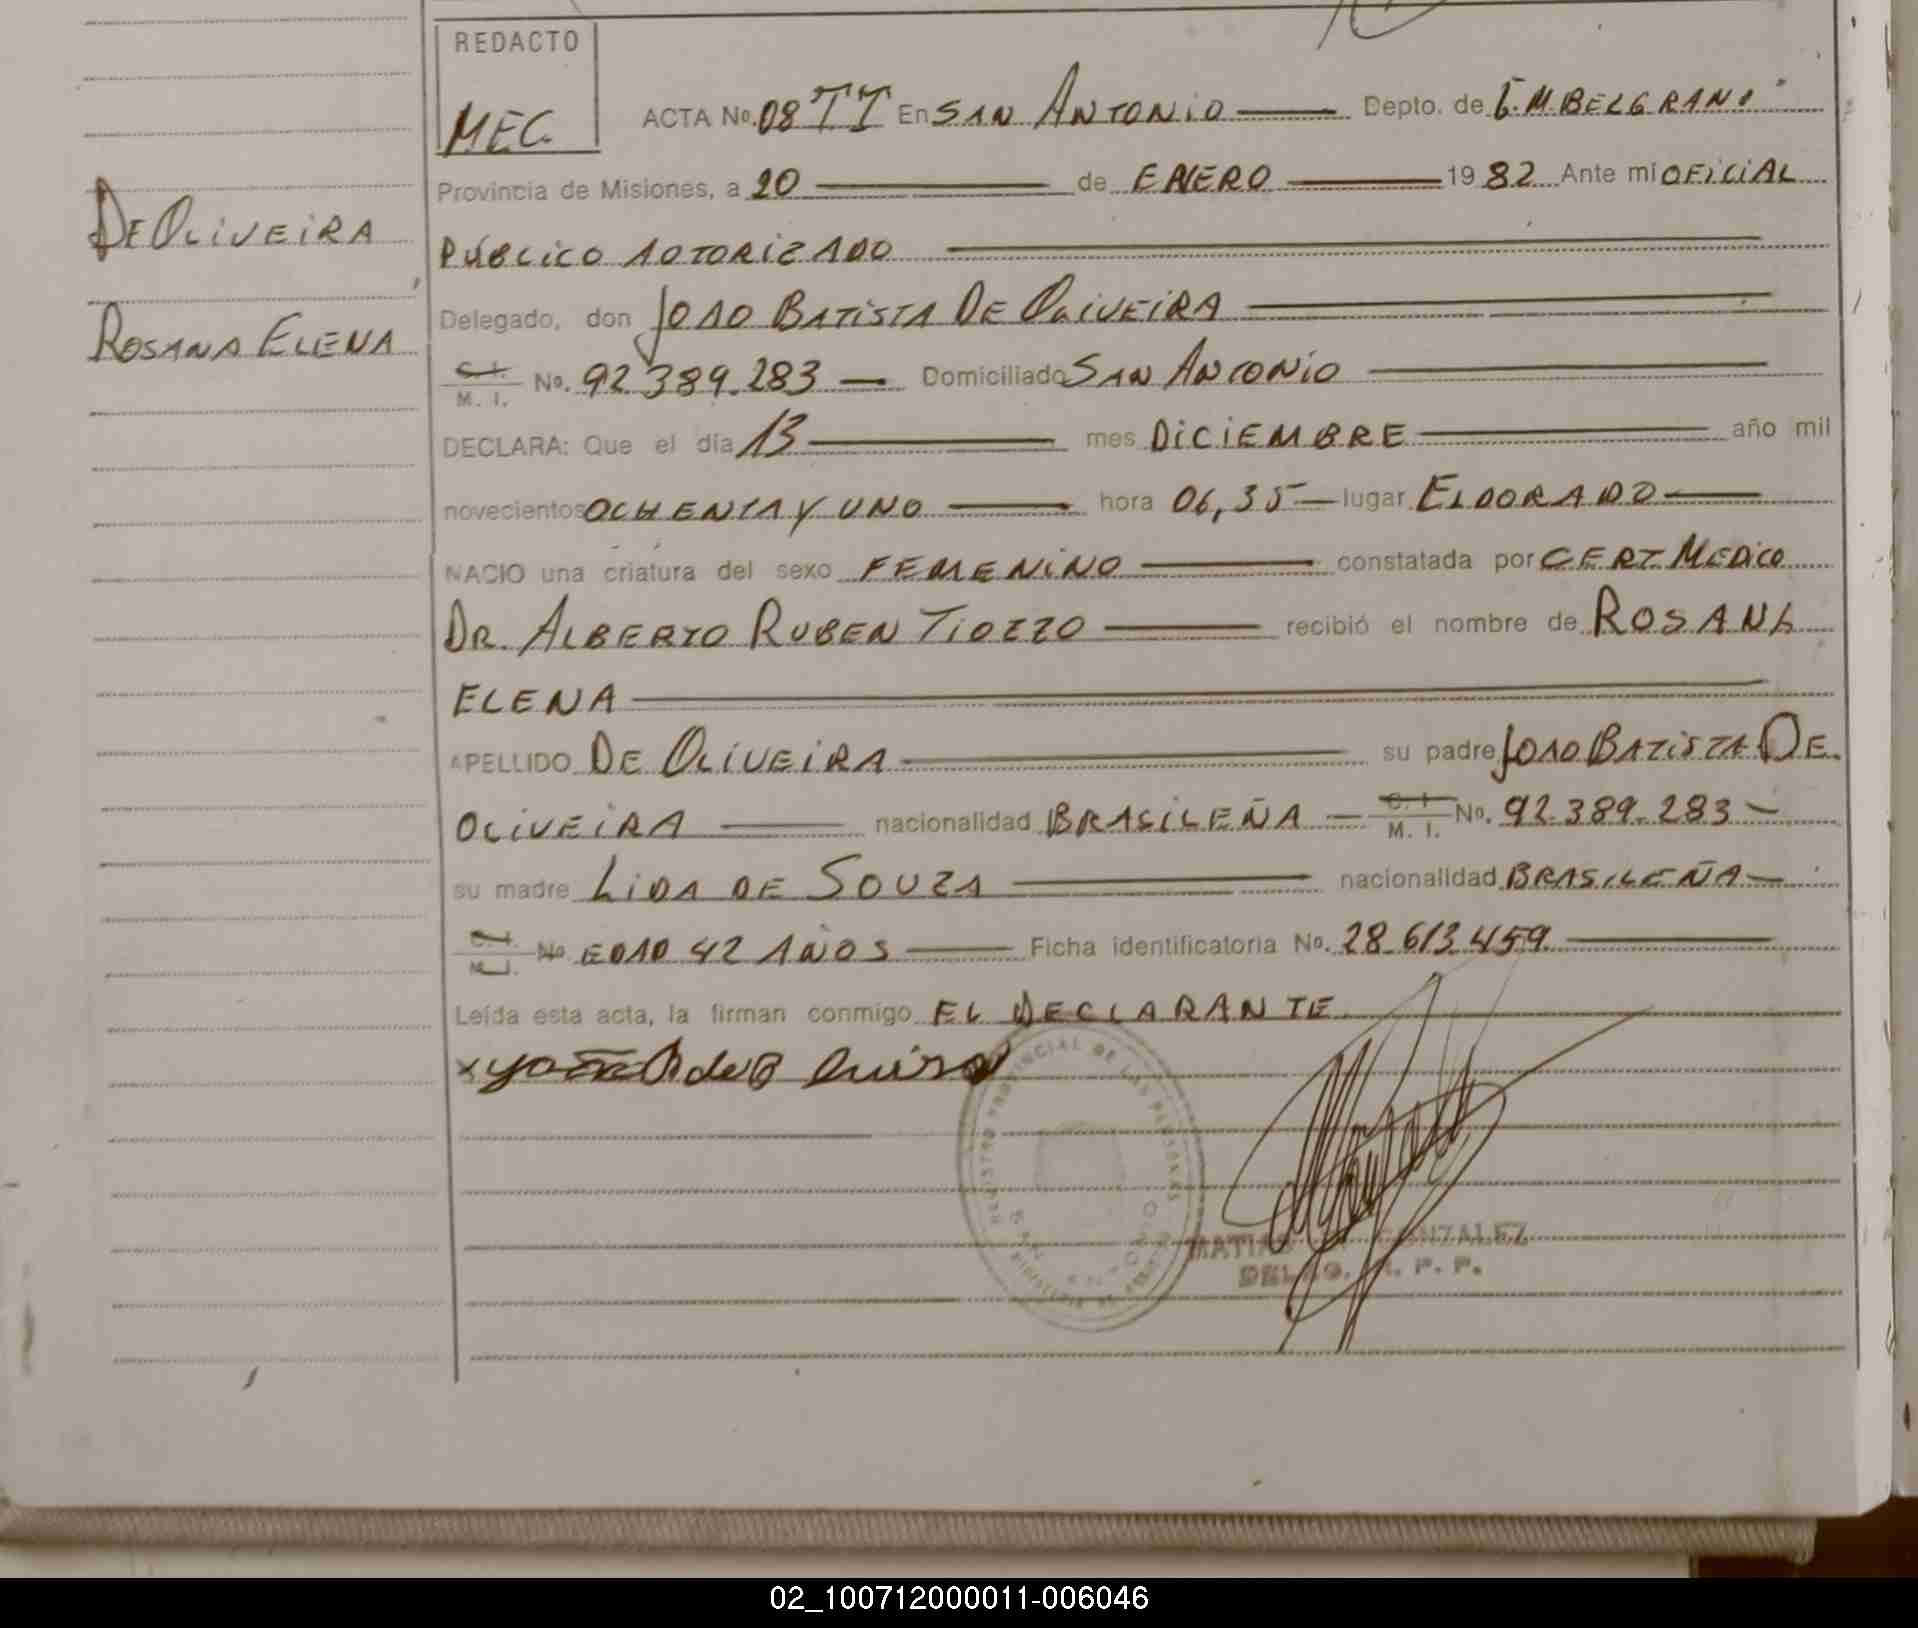 REDACTO
MEC.
ACTA No. 08 TT En SAN ANTONIO Depto. de G. M. BELGRANO
Provincia de Misiones, a 20 de ENERO 1982 Ante mí OFICIAL
PÚBLICO AUTORIZADO
DE OLIVEIRA
ROSANA ELENA
Delegado, don JOAO BATISTA DE OLIVEIRA
C. I.
M. I. No. 92.389.283 Domiciliado SAN ANTONIO
DECLARA: Que el día 13 mes DICIEMBRE año mil
novecientos OCHENTA Y UNO hora 06,35 lugar ELDORADO
NACIO una criatura del sexo FEMENINO constatada por CERT. MEDICO
DR. ALBERTO RUBEN TIOZZO recibió el nombre de ROSANA
ELENA
APELLIDO DE OLIVEIRA su padre JOAO BATISTA DE
OLIVEIRA nacionalidad BRASILEÑA C. I. M. I. No. 92.389.283
su madre LIDA DE SOUZA nacionalidad BRASILEÑA
C. I.
M. I. No. EDAD 42 AÑOS Ficha identificatoria No. 28.613.459
Leída esta acta, la firman conmigo EL DECLARANTE.
REGISTRO PROVINCIAL DE LAS PERSONAS
SAN ANTONIO
MATIAS GONZALEZ
DELEG. R. P. P.
02_100712000011-006046